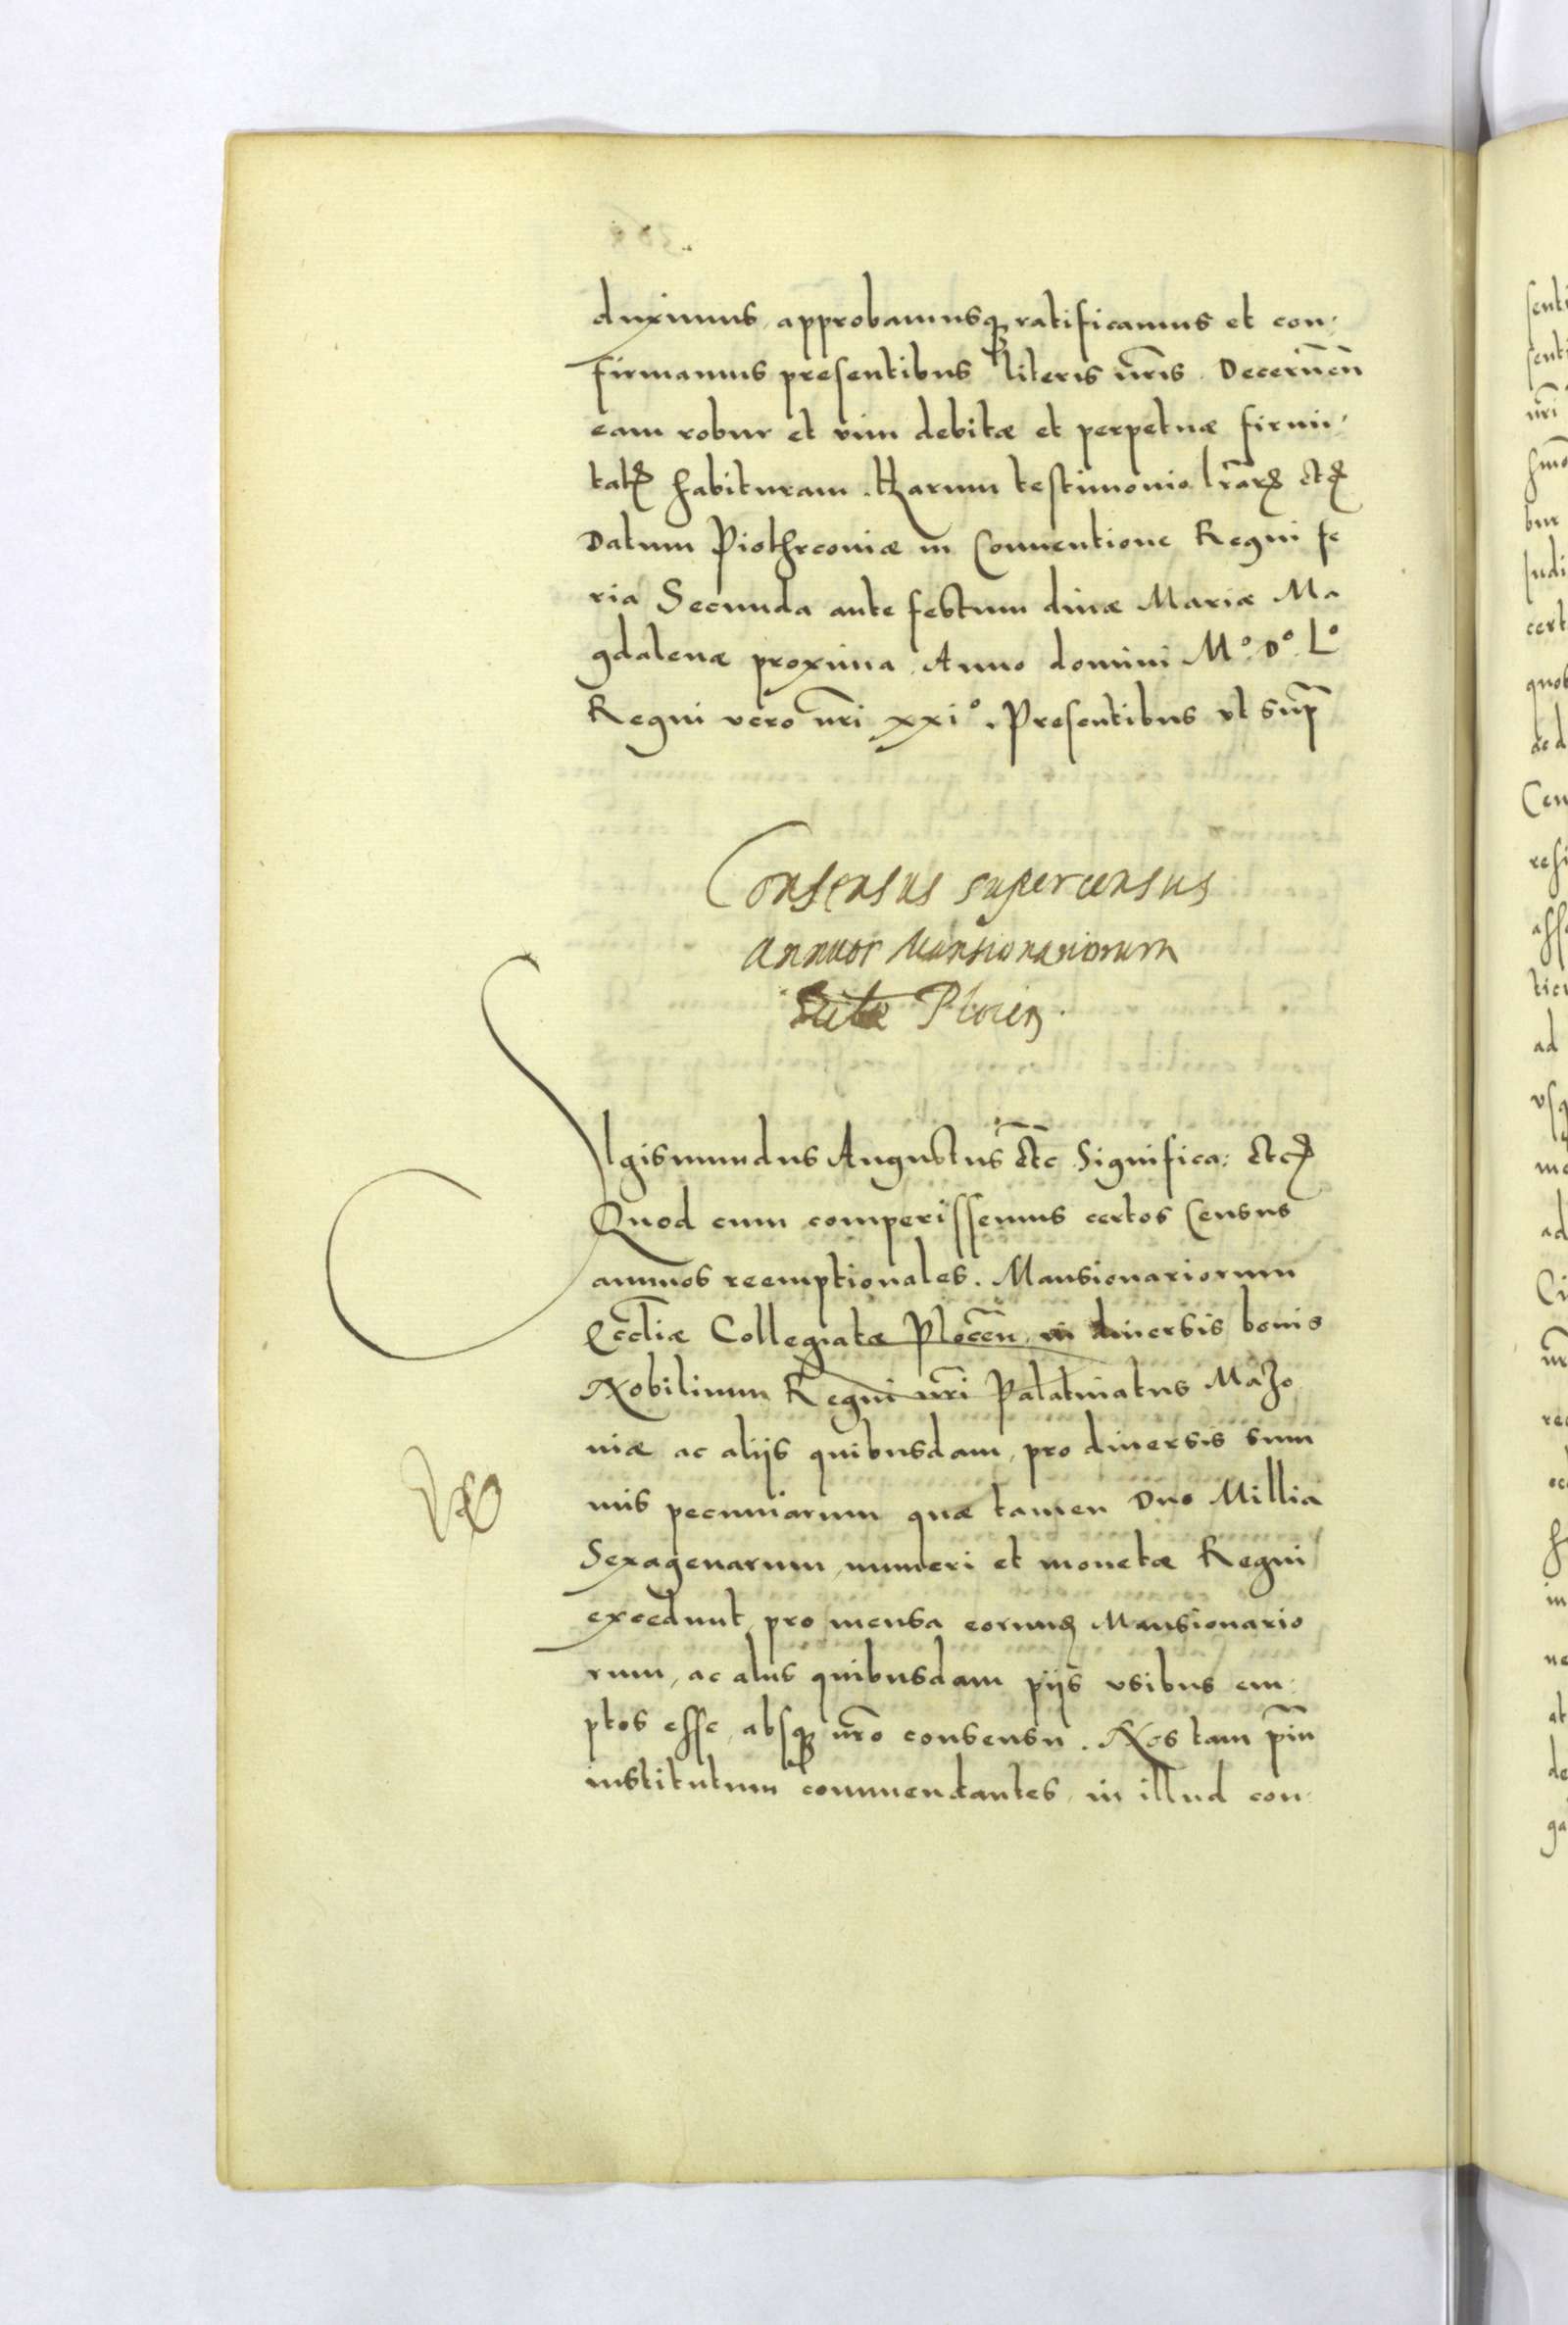 duximus, approbamusq̃ ratificamus et con-
firmamus presentibus literis nr̃is. Decernẽn
eam robur et vim debitæ et perpetuæ firmi-
tatꝭ habituram. Harum testimonio lr̃arꝝ etcꝭ
Datum Piothrconiæ in Conuentione Regni fe
ria Secunda ante festum diuæ Mariæ Ma
gdalenæ proxima. Anno domini M°. D°. L°
Regni vero nr̃i xxi°. Presentibus vt supr̃
Consensus super census
annuor Mansionariorum
Plocen.
Sigismundus Augustus etc̃ Significa: etcꝭ
Quod cum comperissemus certos Census
annuos reemptionales. Mansionariorum
Eccl̃iæ Collegiatæ Plocen̄, in diuersis bonis
Nobilium Regni nr̃i Palatinatus Mazo
uiæ ac aliis quibusdam, pro diuersis sum
mis pecuniarum quæ tamen Duo Millia
Sexagenarum, numeri et monetæ Regni
excedunt, pro mensa eorundꝫ Mansionario
rum, ac aliis quibusdam piis vsibus em-
ptos esse, absq̃ nr̃o consensu. Nos tam piũ
institutum commendantes, in illud con-